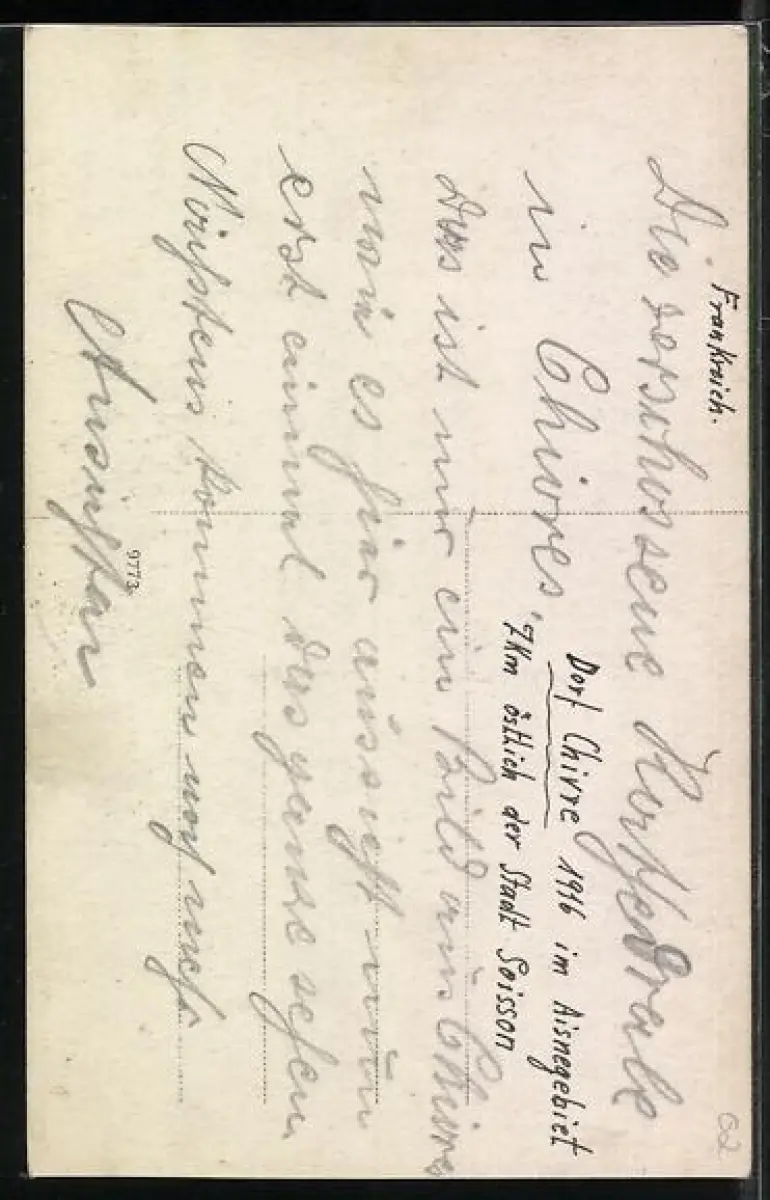 Frankreich.
Die zerschossene Kathedrale
in Chivres,
Dorf Chivre 1916 im Aisnegebiet
7 Km östlich der Stadt Soisson
Das ist nur ein Bild aus Chivres
wie es hier aussieht wen
erst einmal das ganze sehen
kommen noch mehr
Ansichten
9773
02